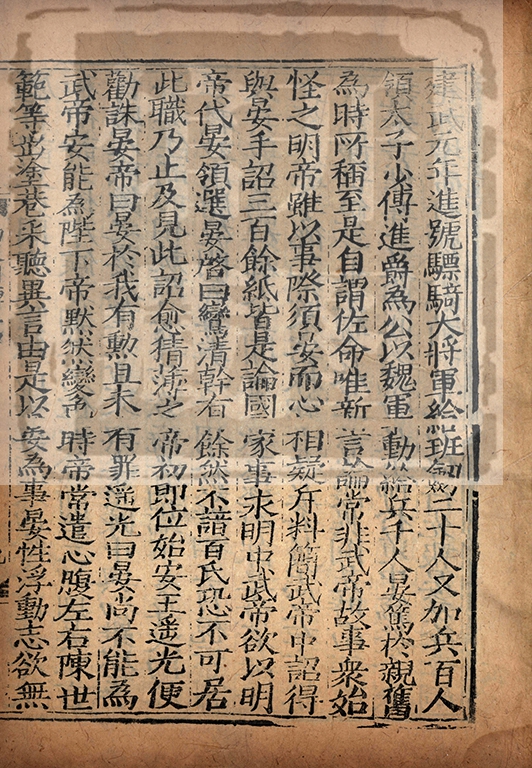 建武元年進號驃騎大將軍給班劔二十人又加兵百人
領太子少傅進爵為公以魏軍動給兵千人晏篤於親舊
為時所稱至是自謂佐命唯新言論常非武帝故事衆始
怪之明帝雖以事際須晏而心相疑斥料簡武帝中詔得
與晏手詔三百餘紙皆是論國家事永明中武帝欲以明
帝代晏領選晏啓曰鸞清幹有餘然不諳百氏恐不可居
此職乃止及見此詔愈猜薄之帝初即位始安王遥光便
勸誅晏帝曰晏於我有勲且未有罪遥光曰晏尚不能為
武帝安能為陛下帝黙然變色時帝常遣心腹左右陳世
範等出塗巷采聽異言由是以晏為事晏性浮動志欲無